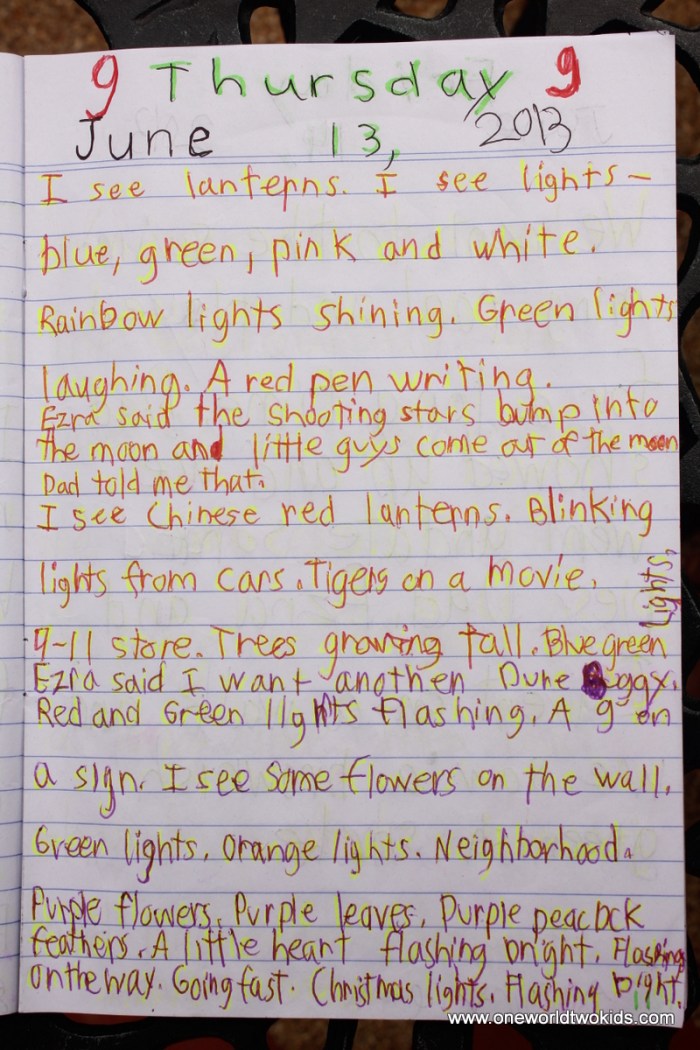 9 Thursday 9
June 13, 2013
I see lanterns. I see lights -
blue, green, pink and white.
Rainbow lights shining. Green lights
laughing. A red pen writing.
Ezra said the shooting stars bump into
the moon and little guys come out of the moon
Dad told me that.
I see Chinese red lanterns. Blinking
lights from cars. Tigers on a movie.
9-11 store. Trees growing tall. Blue green
lights.
Ezra said I want another Dune Buggy.
Red and Green lights flashing. A g on
a sign. I see some flowers on the wall.
Green lights. Orange lights. Neighborhood.
Purple flowers. Purple leaves. Purple peacock
feathers. A little heart flashing bright. Flashing
on the way. Going fast. Christmas lights. Flashing bight.
www.oneworldtwokids.com